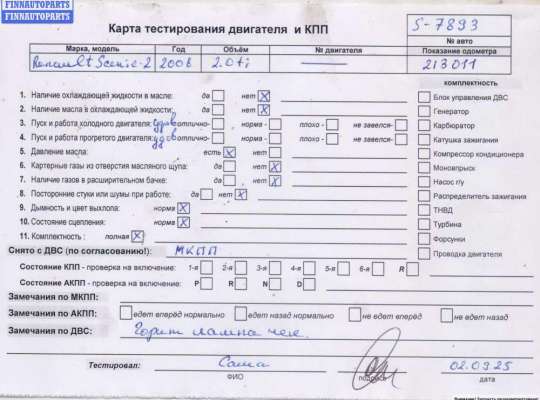 FINNAUTOPARTS
FINNAUTOPARTS
Карта тестирования двигателя и КПП
S-7893
№ авто
Марка, модель Год Объём № двигателя Показание одометра
Renault Scenic-2 2006 2.0ti 213011
комплектность
1. Наличие охлаждающей жидкости в масле: да нет X
Блок управления ДВС
2. Наличие масла в охлаждающей жидкости: да нет X
Генератор
3. Пуск и работа холодного двигателя: удов отлично- норма - плохо - не завелся-
Карбюратор
4. Пуск и работа прогретого двигателя: удов отлично- норма - плохо - не завелся-
Катушка зажигания
5. Давление масла: есть X нет
Компрессор кондиционера
6. Картерные газы из отверстия масляного щупа: да нет X
Моновпрыск
7. Наличие газов в расширительном бачке: да нет X
Насос г/у
8. Посторонние стуки или шумы при работе: да нет X
Распределитель зажигания
9. Дымность и цвет выхлопа: норма X
ТНВД
10. Состояние сцепления: норма X
Турбина
11. Комплектность : полная X
Форсунки
Снято с ДВС (по согласованию!): МКПП
Проводка двигателя
Состояние КПП - проверка на включение: 1-я 2-я 3-я 4-я 5-я 6-я R
Состояние АКПП - проверка на включение: P R N D
Замечания по МКПП:
Замечания по АКПП: едет вперёд нормально едет назад нормально не едет вперёд не едет назад
Замечания по ДВС: Горит лампа чек
Тестировал: Саша 02.09.25
ФИО подпись дата